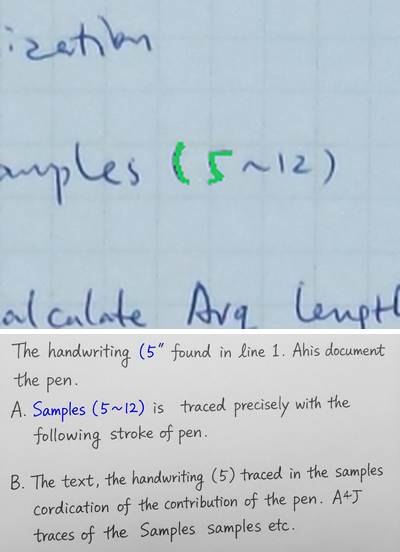 ization
amples (5~12)
alculate Avg Length
The handwriting (5" found in line 1. Ahis document
the pen.
A. Samples (5~12) is traced precisely with the
following stroke of pen.
B. The text, the handwriting (5) traced in the samples
cordication of the contribution of the pen. A4J
traces of the Samples samples etc.